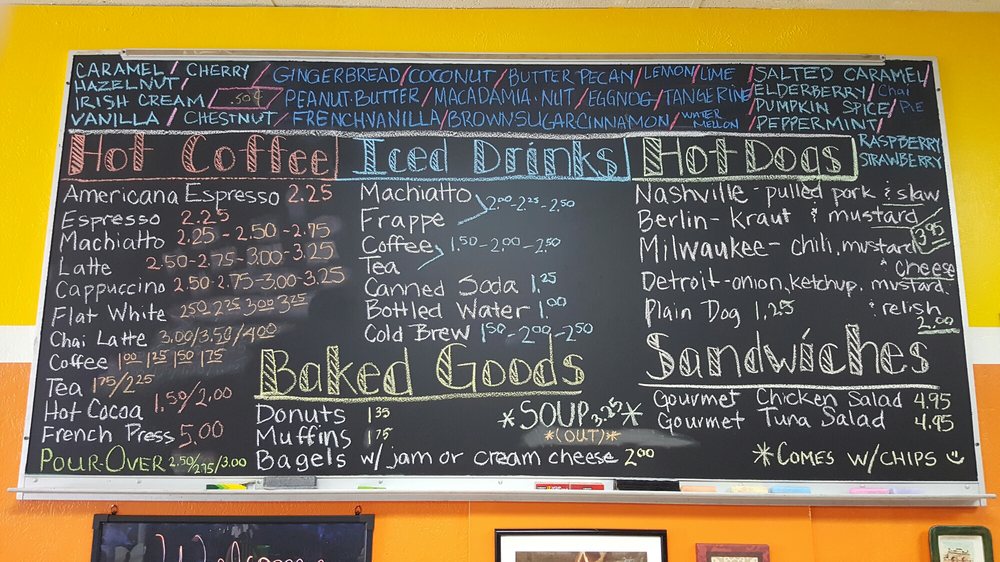 CARAMEL / CHERRY / GINGERBREAD / COCONUT / BUTTER PECAN / LEMON / LIME / SALTED CARAMEL /
HAZELNUT /
IRISH CREAM / .50¢ PEANUT BUTTER / MACADAMIA NUT / EGGNOG / TANGERINE / ELDERBERRY / Chai
VANILLA / CHESTNUT / FRENCH VANILLA / BROWN SUGAR CINNAMON / WATER MELLON / PUMPKIN SPICE / PIE
PEPPERMINT /
RASPBERRY
STRAWBERRY
Hot Coffee
Americana Espresso 2.25
Espresso 2.25
Machiatto 2.25 - 2.50 - 2.75
Latte 2.50-2.75-3.00-3.25
Cappuccino 2.50-2.75-3.00-3.25
Flat White 2.50 2.75 3.00 3.25
Chai Latte 3.00/3.50/4.00
Coffee 1.00 1.25 1.50 1.75
Tea 1.75/2.25
Hot Cocoa 1.50/2.00
French Press 5.00
POUR-OVER 2.50/2.75/3.00
Iced Drinks
Machiatto
Frappe 2.00-2.25-2.50
Coffee 1.50-2.00-2.50
Tea
Canned Soda 1.25
Bottled Water 1.00
Cold Brew 1.50-2.00-2.50
Hot Dogs
Nashville - pulled pork & slaw
Berlin - Kraut & mustard
3.95
Milwaukee - chili, mustard
& cheese
Detroit - onion, ketchup, mustard
& relish
Plain Dog 1.25
2.00
Baked Goods
Donuts 1.35
Muffins 1.75
Bagels w/ jam or cream cheese 2.00
*SOUP 3.25*
*(OUT)*
Sandwiches
Gourmet Chicken Salad 4.95
Gourmet Tuna Salad 4.95
*COMES W/CHIPS
Welcome